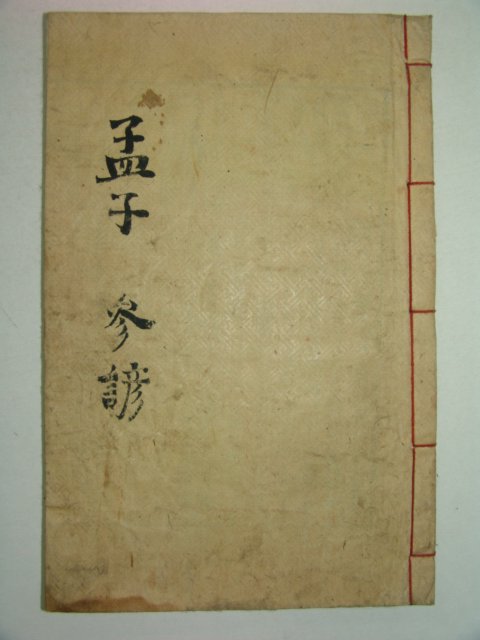 孟子 參諺